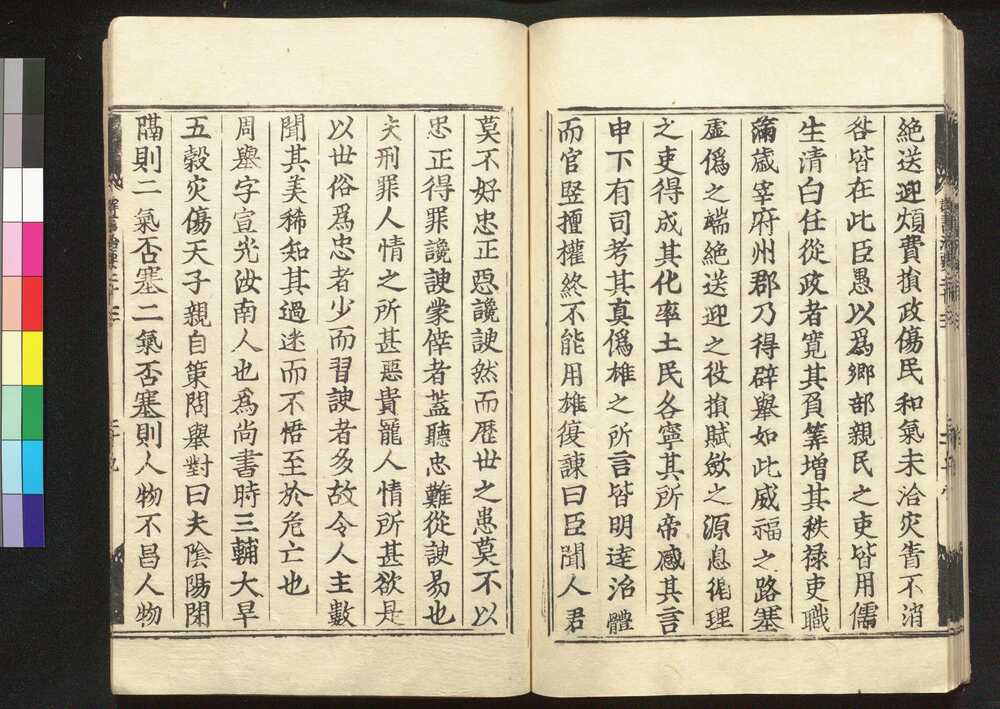 絶送迎煩費損政傷民和氣未洽灾眚不消
咎皆在此臣愚以爲鄉部親民之吏皆用儒
生清白任從政者寬其負筭增其秩祿吏職
滿歲宰府州郡乃得辟舉如此威福之路塞
虛僞之端絶送迎之役損賦斂之源息循理
之吏得成其化率土民各寧其所帝感其言
申下有司考其真僞雄之所言皆明達治體
而宦竪擅權終不能用雄復諫曰臣聞人君
莫不好忠正惡讒諛然而歷世之患莫不以
忠正得罪讒諛蒙倖者蓋聽忠難從諛易也
夫刑罪人情之所甚惡貴寵人情所甚欲是
以世俗爲忠者少而習諛者多故令人主數
聞其美稀知其過迷而不悟至於危亡也
周舉字宣光汝南人也爲尚書時三輔大旱
五穀灾傷天子親自策問舉對曰夫陰陽閉
隔則二氣否塞二氣否塞則人物不昌人物